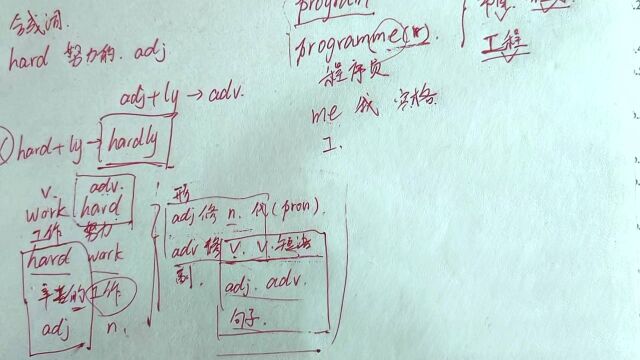 hard 努力的. adj
adj+ly→adv.
hard+ly→hardly
v. adv.
work hard
工作 努力
hard work
辛苦的工作
adj n.
形
adj 修 n. 代(pron).
adv 修 v. v.短语
副. adj. adv.
句子.
program
programme(r).
程序员
me 我 宾格.
I.
工程